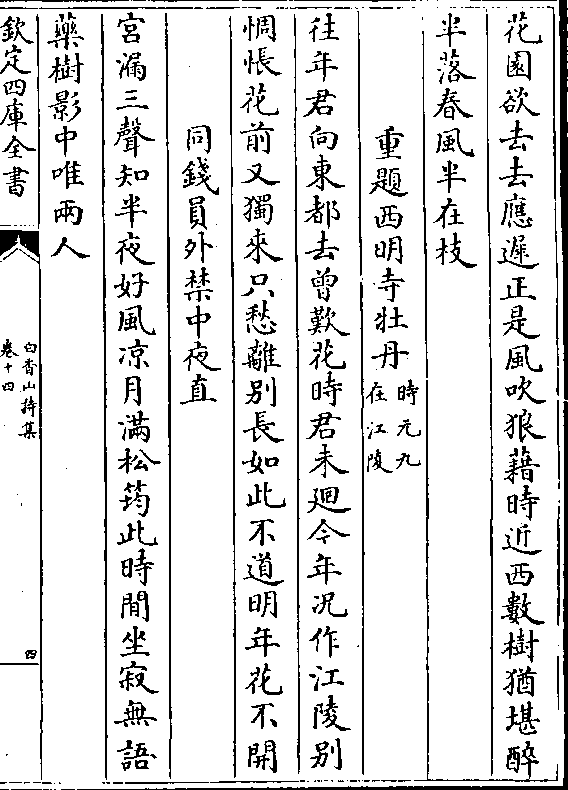 花園欲去去應遲正是風吹狼藉時近西數樹猶堪醉
半落春風半在枝
重題西明寺牡丹時元九在江陵
往年君向東都去曾歎花時君未廻今年况作江陵别
惆悵花前又獨來只愁離别長如此不道明年花不開
同錢員外禁中夜直
宮漏三聲知半夜好風凉月滿松筠此時閒坐寂無語
藥樹影中唯兩人
欽定四庫全書
白香山詩集
卷十四
四